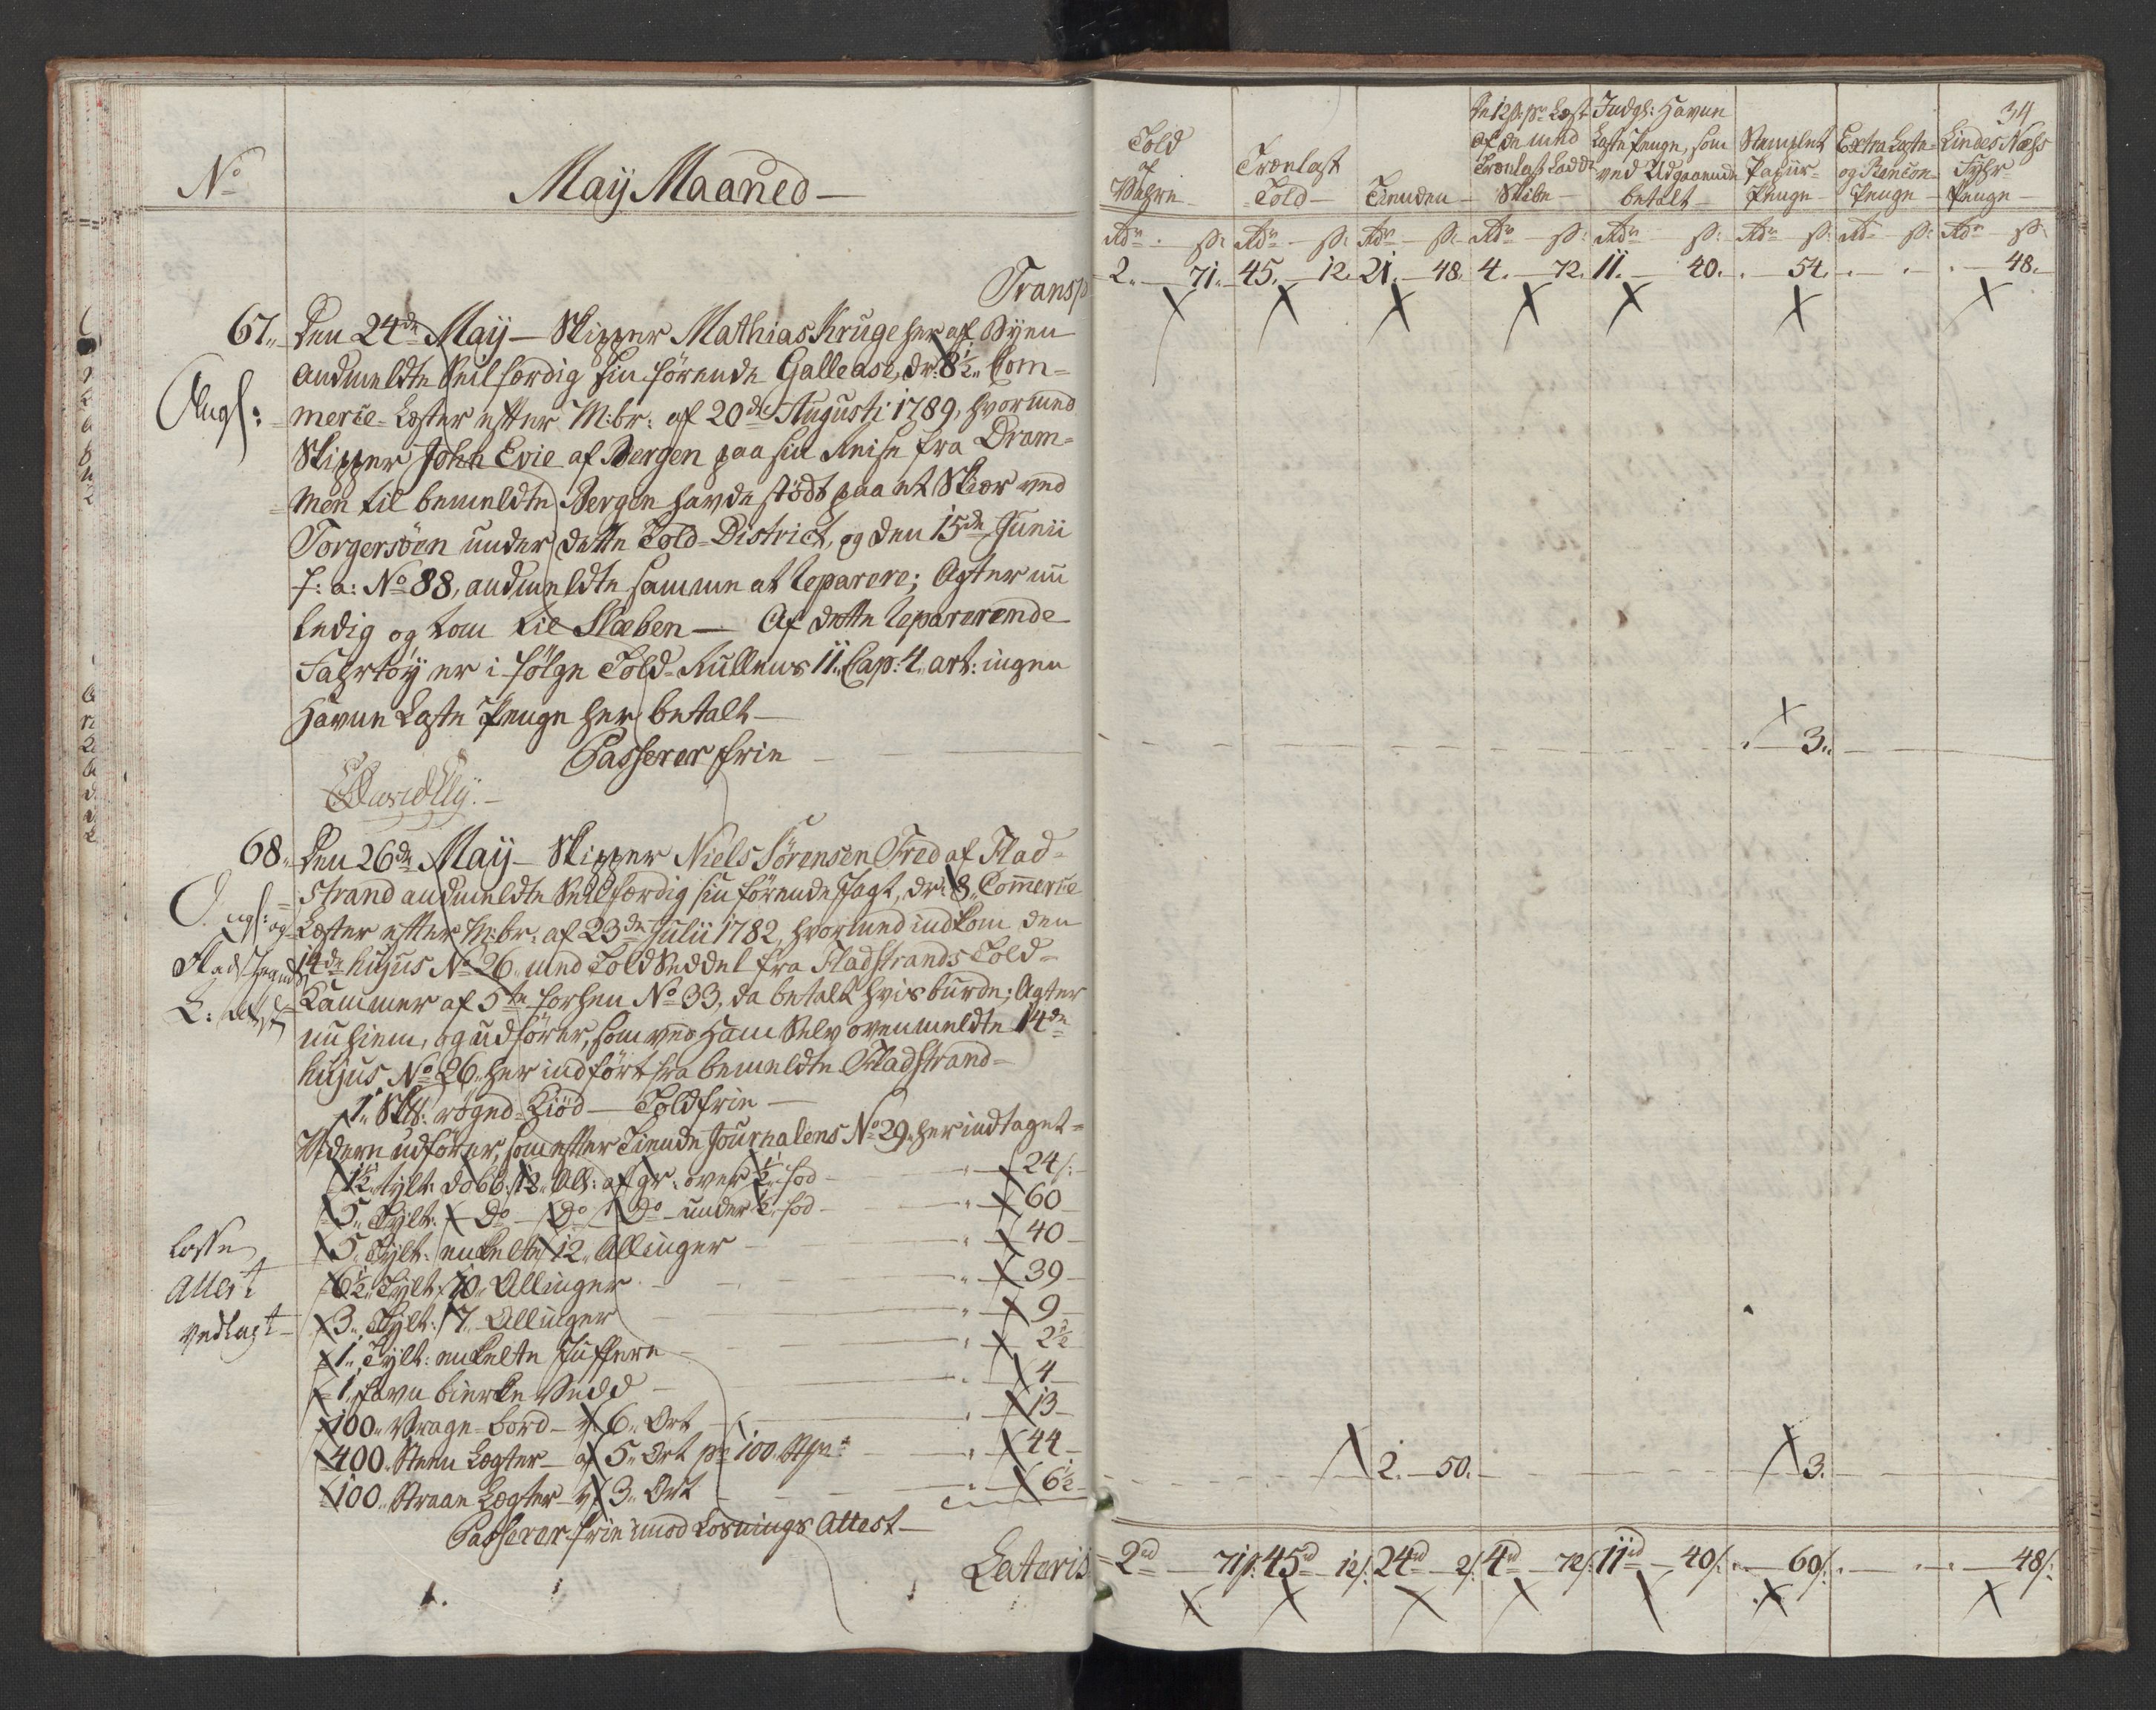 No
Maÿ Maaned
Transp
67. Den 24de Maÿ - Skipper Mathias Kruge her af Byen
andmeldte Seilfærdig sin førende Gallease, dr. 8½ Com=
merce-Læster efter M:br: af 20de Augusti 1789, hvormed
Skipper John Evie af Bergen paa sin Reise fra Dram=
men til bemeldte Bergen havde stødt paa et Skiær ved
Torgersøen under dette Told-District, og den 15de Junii
f: a: No 88, andmeldte samme at reparere; Agter nu
ledig og tom til Slæben - Af dette reparerende
Fartøÿ er i følge Told-Rullens 11. Cap: 4. art: ingen
Havne Læste Penge her betalt
Passerer frie
68. Den 26de Maÿ - Skipper Niels Sørensen Fred af Flad=
strand andmeldte Seilfærdig sin førende Jagt, dr. 8 Commerce
Læster efter M:br: af 23de Julii 1782, hvormed indkom den
14de hujus No 26 med Told Seddel fra Fladstrands Told=
Kammer af 5te forhen No 33, da betalt hvis burde; Agter
nu hiem, og udfører, som ved Ham Selv ovenmeldte 14de
hujus No 26, her indført fra bemeldte Fladstrand=
1 røged Kiød - Toldfrie
Videre udfører, som efter Tiende Journalens No 29 her indtaget=
1½ tylt: dobb: 12 All: af gr: over ½ fod - 24 s:
5 Tylt: do do do under ½ fod - 60
5 Tylt: enkelte 12 Allinger - 40
6½ Tylt: 10 Allinger - 39
3 Tylt: 7 Allinger - 9
1 Tylt: enkelte Juffere - 2½
1 favn birke Vedd - 4
100 Vrage-bord - 6 Ort - 13
400 Steen Lægter - af 5 Ort pr 100 - 44
100 Straae Lægter - 3 Ort - 6½
Passerer frie imod Losnings Attest
Lateris
Losse
Attest
vedlagt
34
Told af Vahre
Trælast Told
Tienden
De 12 s: pr Læst af de med Trælast Ladde Skibe
Indgl: Havne Læste Penge, som ved Udgaaende betalt
Stemplet Papiir Penge
Extra Læste og Rancon Penge
Lindes Næss Fyhr Penge
Rdr s: Rdr s: Rdr s: Rdr s: Rdr s: Rdr s: Rd s: Rdr s:
2. 71. 45. 12. 21. 48. 4. 72. 11. 40. 54. 48.
3.
2. 50. 3.
2rd 71 s: 45rd 12 s: 24rd 2 s: 4rd 72 s: 11rd 40 s: 60 s: 48 s: